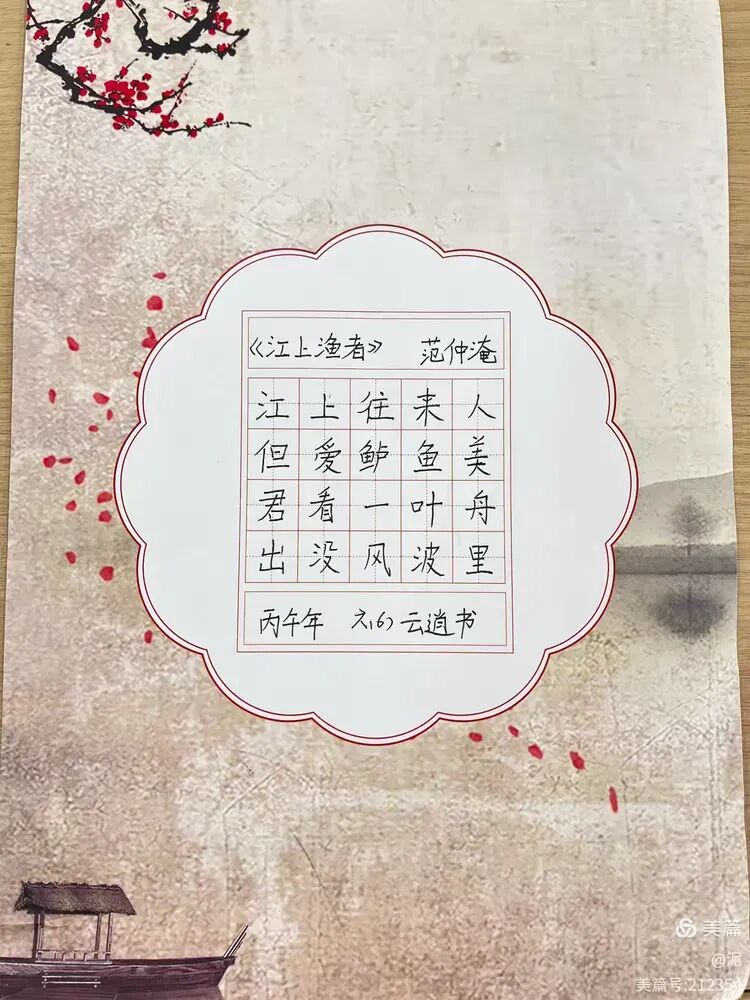 《江上渔者》 范仲淹
江上往来人
但爱鲈鱼美
君看一叶舟
出没风波里
丙午年 六(6) 云道书
美篇
@浘
美篇号:212354